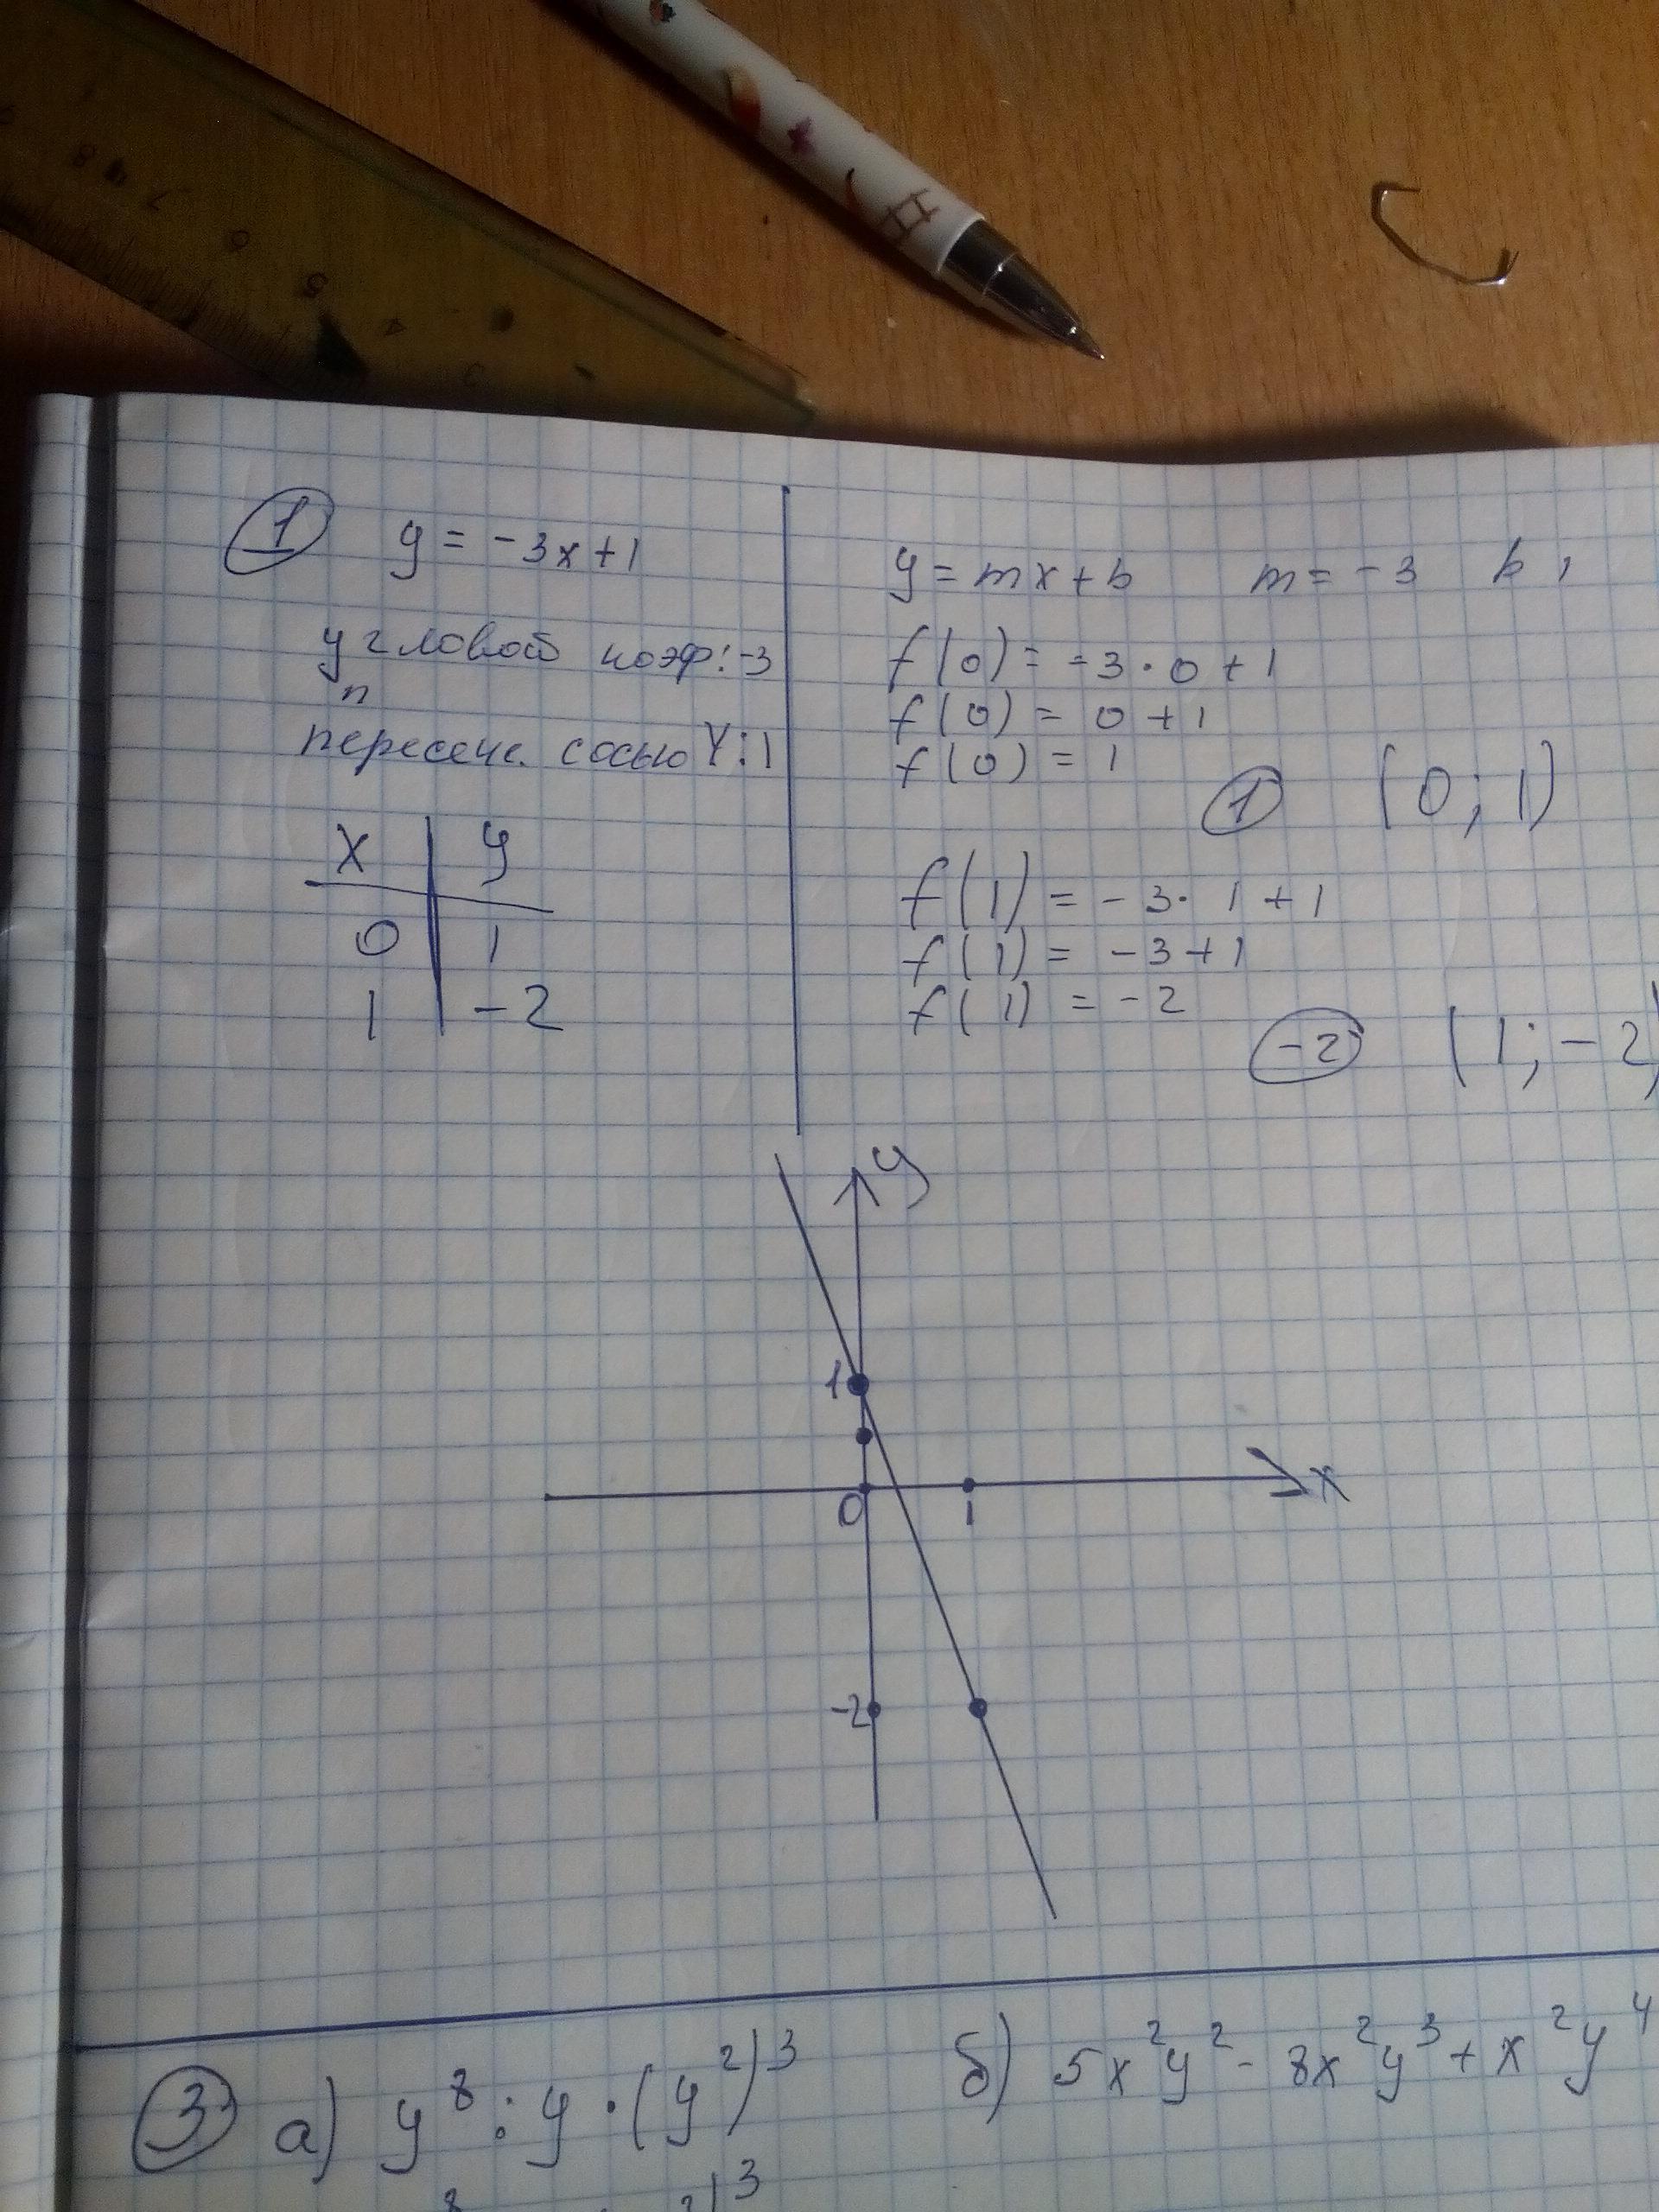 1 y = -3x+1
угловой коэф: -3
п
пересеч. с осью Y: 1
x y
0 1
1 -2
y = mx + b m = -3 b 1
f(0) = -3·0+1
f(0) = 0+1
f(0) = 1
1 (0; 1)
f(1) = -3·1+1
f(1) = -3+1
f(1) = -2
-2 (1; -2)
y
1
0 1 x
-2
3 а) y⁸ : y · (y²)³ б) 5x²y² - 8x²y³ + x²y⁴